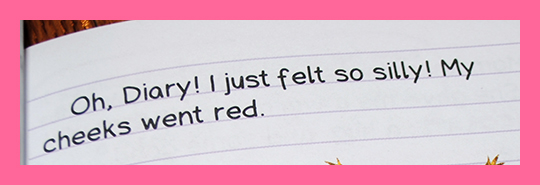 Oh, Diary! I just felt so silly! My
cheeks went red.